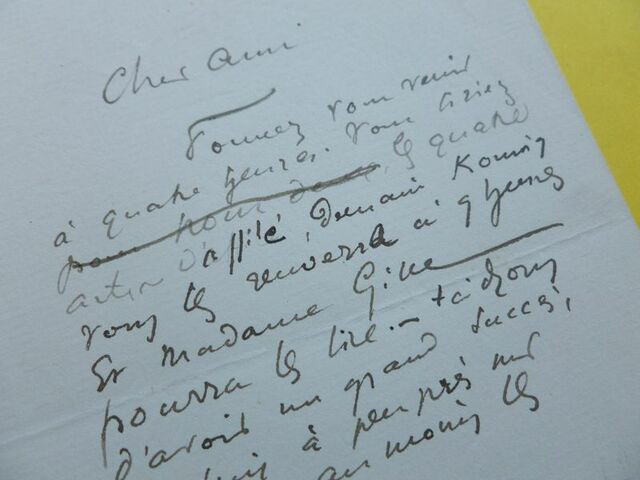 Cher Ami
Pouvez vous venir
à quatre heures. Vous liriez
pour nous deux les quatre
actes d'affilé, demain Koning
vous les renverra à 9 heures
Et Madame Gille
pourra les lire. — tâchons
d'avoir un grand succès,
à peu près sur
au moins les